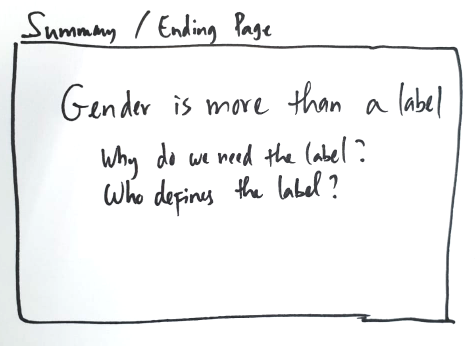 Summary / Ending Page
Gender is more than a label
Why do we need the label?
Who defines the label?